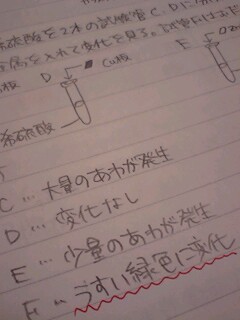 硫酸を2本の試験管C、Dに
金属を入れて変化を見る。試験管
D Cu板
E
希硫酸
C … 大量のあわが発生
D … 変化なし
E … 少量のあわが発生
F … うすい緑色に変化